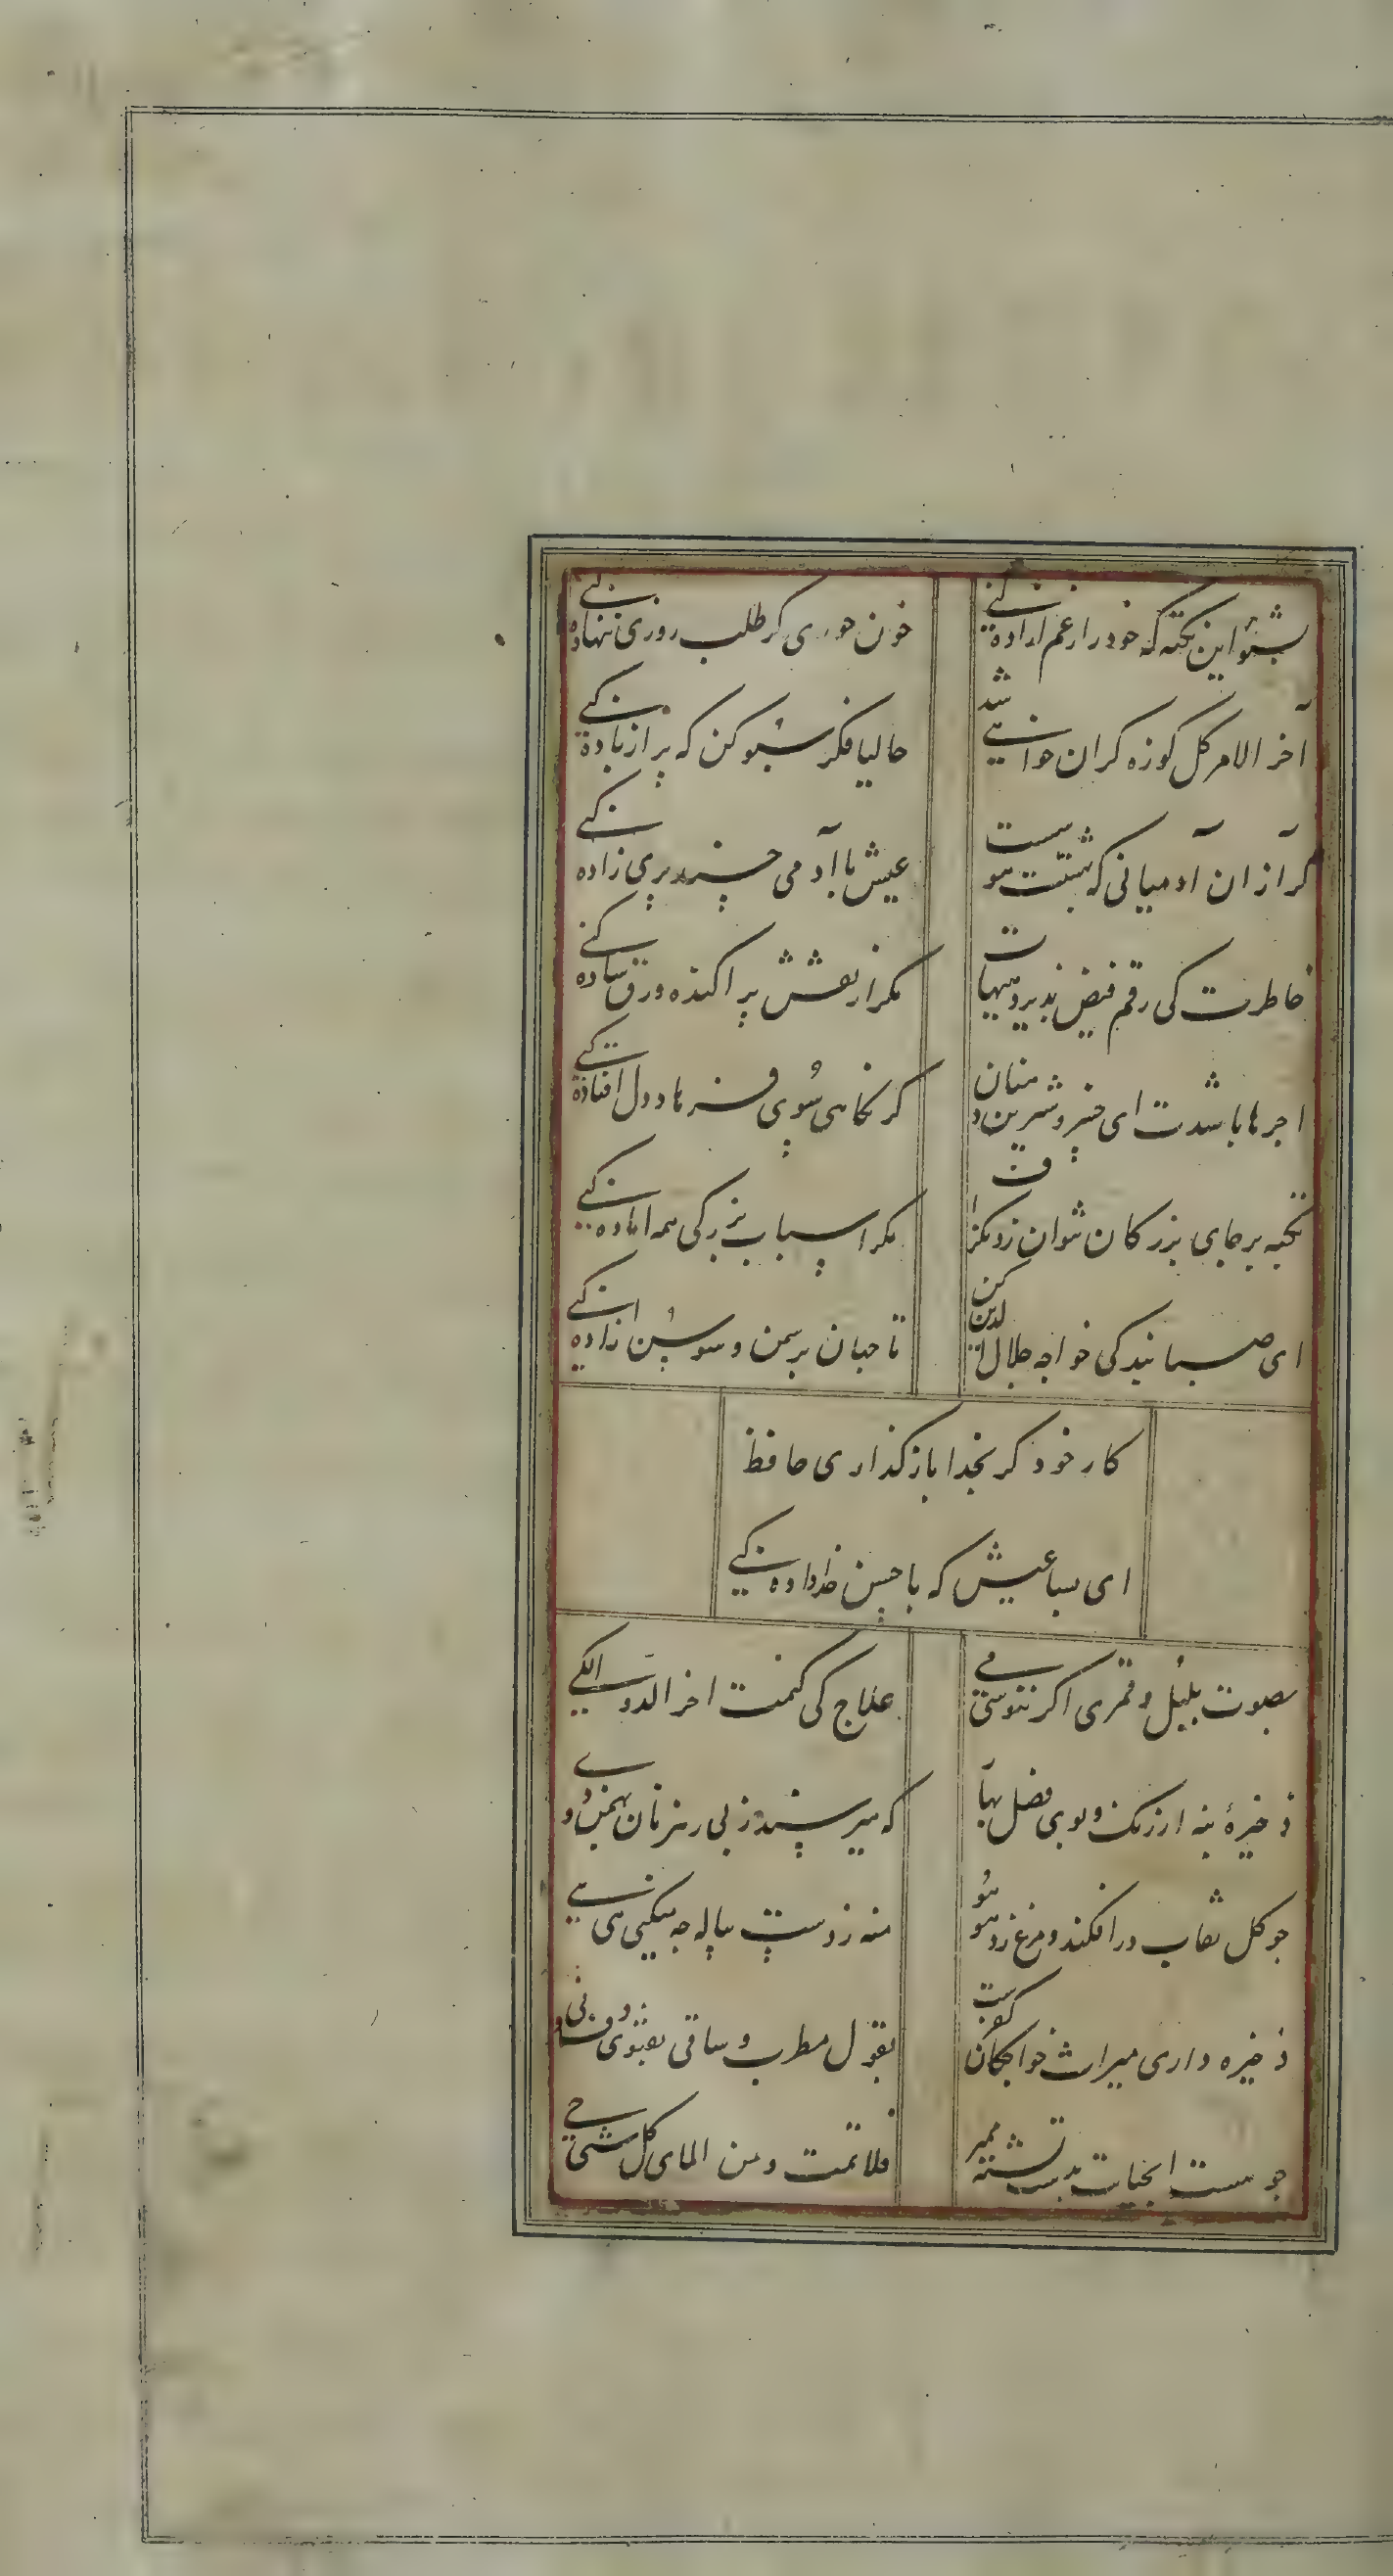 بشنو این نکته که خود را ز غم ازاده کنی
خون خوری کر طلب روزی ننهاده کنی
آخر الامر کل کوزه کران خواهی شد
حالیا فکر سبو کن که پر از باده کنی
کر از ان آدمیانی که بهشتت هوست
عیش با آدمی چند پری زاده کنی
خاطرت کی رقم فیض پذیرد هیهات
مکر از نقش پراکنده ورق ساده کنی
اجرها باشدت ای خسرو شیرین دهنان
کر نکاهی سوی فرهاد دل افتاده کنی
تکیه بر جای بزرکان نتوان زد بکزاف
مکر اسباب بزرکی همه اماده کنی
ای صبا بندکی خواجه جلال الدین کن
تا جهان پر سمن و سوسن ازاده کنی
کار خود کر بخدا باز کذاری حافظ
ای بسا عیش که با حسن خداداده کنی
بصوت بلبل و قمری اکر ننوشی می
علاج کی کنمت اخر الدوا الکی
ذخیرهٔ بنه از رنک و بوی فصل بهار
که میرسند ز پی رهزنان بهمن و دی
جو کل نقاب در افکند و مرغ زد هو هو
منه ز دست پیاله جه میکنی هی هی
ذخیره داری میراث خوارکان کفرست
بقول مطرب و ساقی بفتوی دف و نی
جو هست ابحیات بدست تشنه ممیر
فلا تمت و من الماء کل شی حی